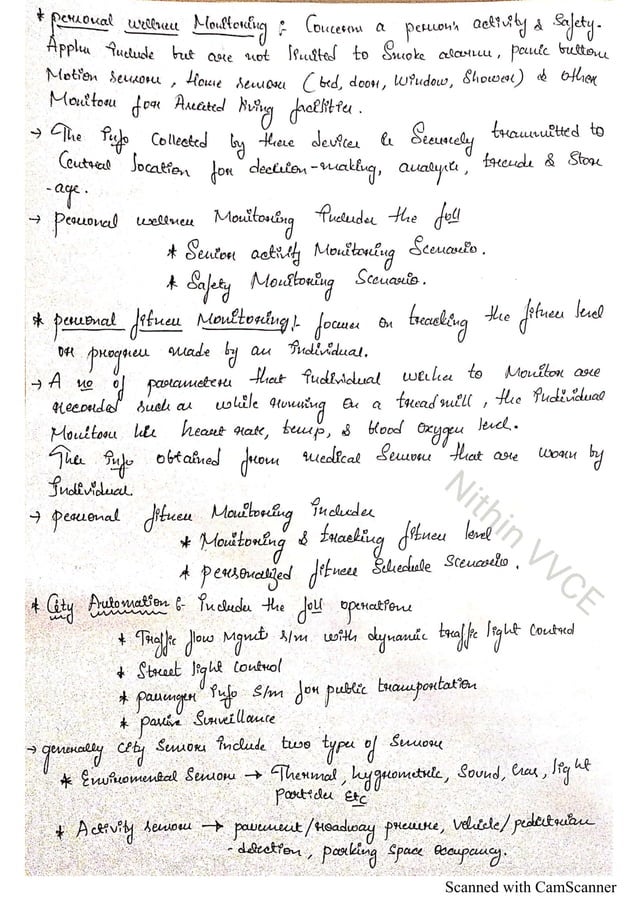 * personal wellness Monitoring :- Concerns a person's activity & Safety.
Applns include but are not limited to Smoke alarms, panic buttons
Motion sensors, Home sensors (bed, door, Window, Shower) & other
Monitors for Assisted living facilities.
→ The Info Collected by these devices is Securely transmitted to
Central location for decision-making, analysis, trends & Stor
-age.
→ personal wellness Monitoring Includes the foll
* Senior activity Monitoring Scenario.
* Safety Monitoring Scenario.
* personal fitness Monitoring :- focuses on tracking the fitness level
or progress made by an Individual.
→ A no of parameters that Individual wishes to Monitor are
recorded such as while running on a treadmill, the Individual
Monitors his heart rate, temp, & blood oxygen level.
This Info obtained from medical Sensors that are worn by
Individual.
→ personal fitness Monitoring Includes
* Monitoring & tracking fitness level
* personalized fitness Schedule Scenario.
* City Automation :- Includes the foll operations
* Traffic flow Mgmt s/m with dynamic traffic light Control
* Street light Control
* passenger Info s/m for public transportation
* passive Surveillance
→ generally city Sensors Include two types of Sensors
* Enviromental Sensors → Thermal, hygrometric, Sound, Gas, light
particles Etc
* Activity sensors → pavement/roadway pressure, Vehicle/pedestrian
-detection, parking Space Occupancy.
Nithin VVCE
Scanned with CamScanner